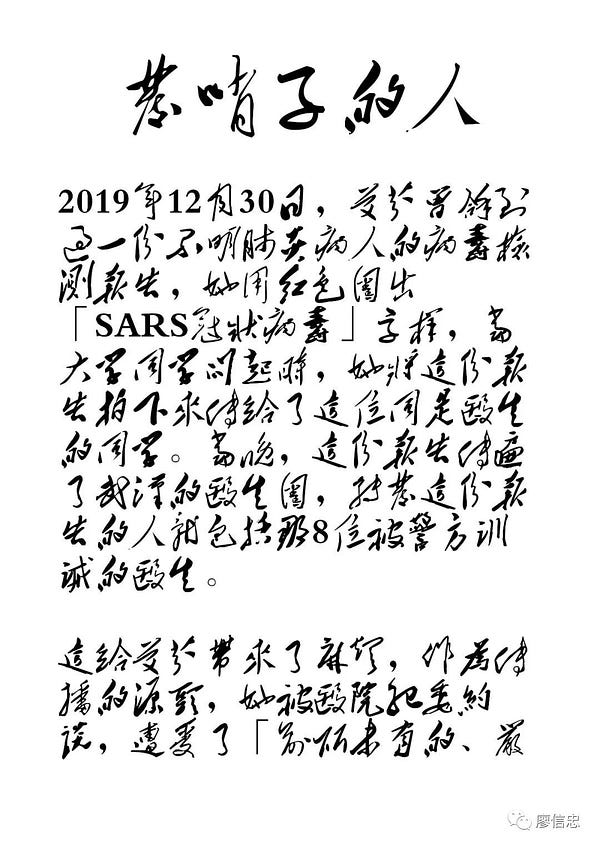 發哨子的人
2019年12月30日，艾芬曾經收到
過一份不明肺炎病人的病毒檢
測報告，她用紅色圈出
「SARS冠狀病毒」字樣，當
大學同學問起時，她將這份報
告拍下來傳給了這位同是醫生
的同學。當晚，這份報告傳遍
了武漢的醫生圈，轉發這份報
告的人就包括那8位被警方訓
誡的醫生。
這給艾芬帶來了麻煩，作為傳
播的源頭，她被醫院紀委約
談，遭受了「前所未有的、嚴
廖信忠